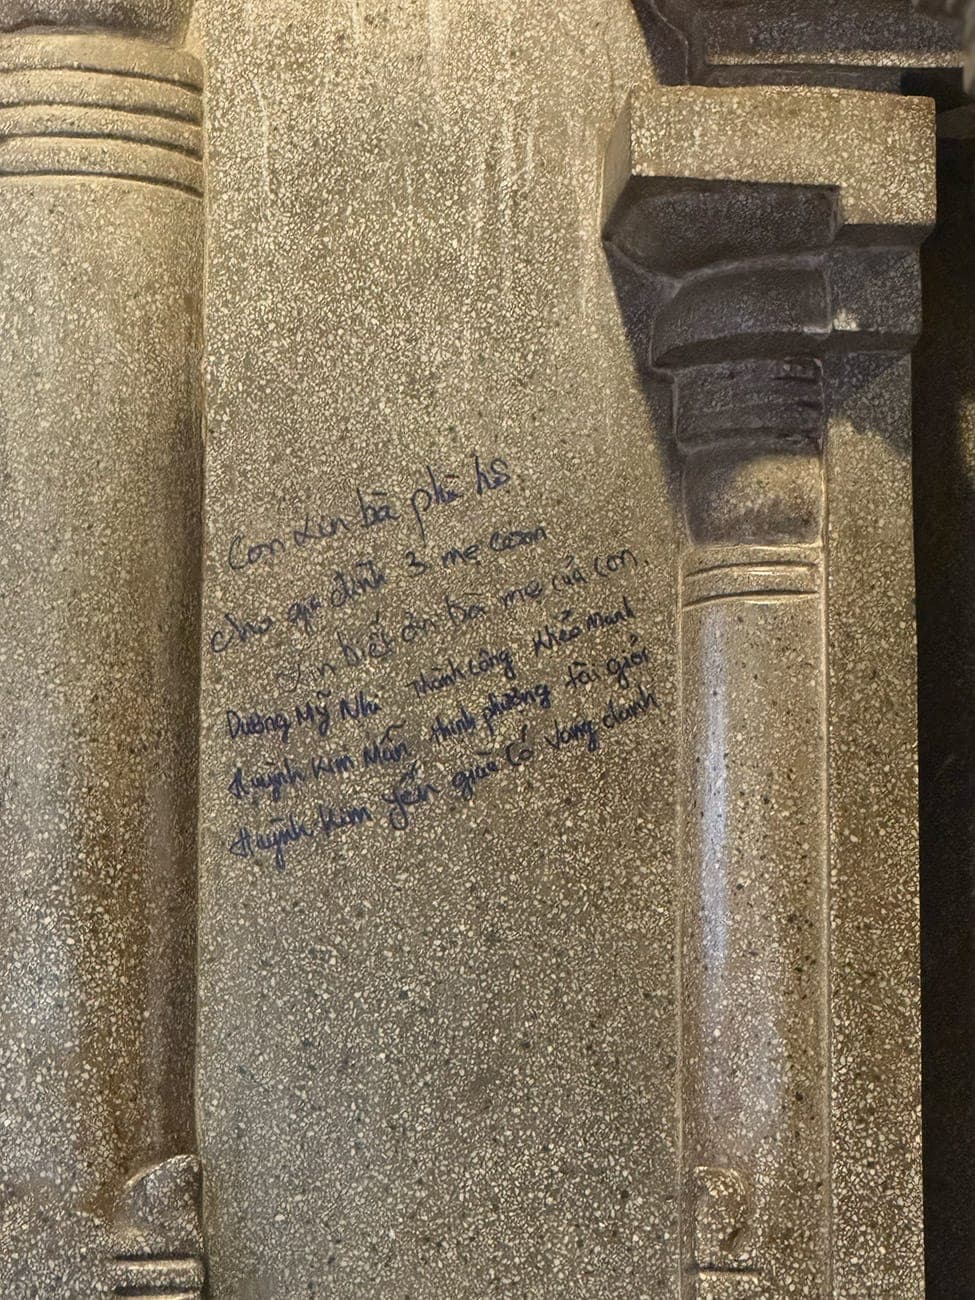 Con xin bà phù hộ
cho gia đình 3 mẹ con
Xin biết ơn bà mẹ của con.
Dương Mỹ Nhi Thành công Khỏe Mạnh
Huỳnh Kim Mẫn thịnh phượng tài giỏi
Huỳnh Kim yến giàu Có Vang danh